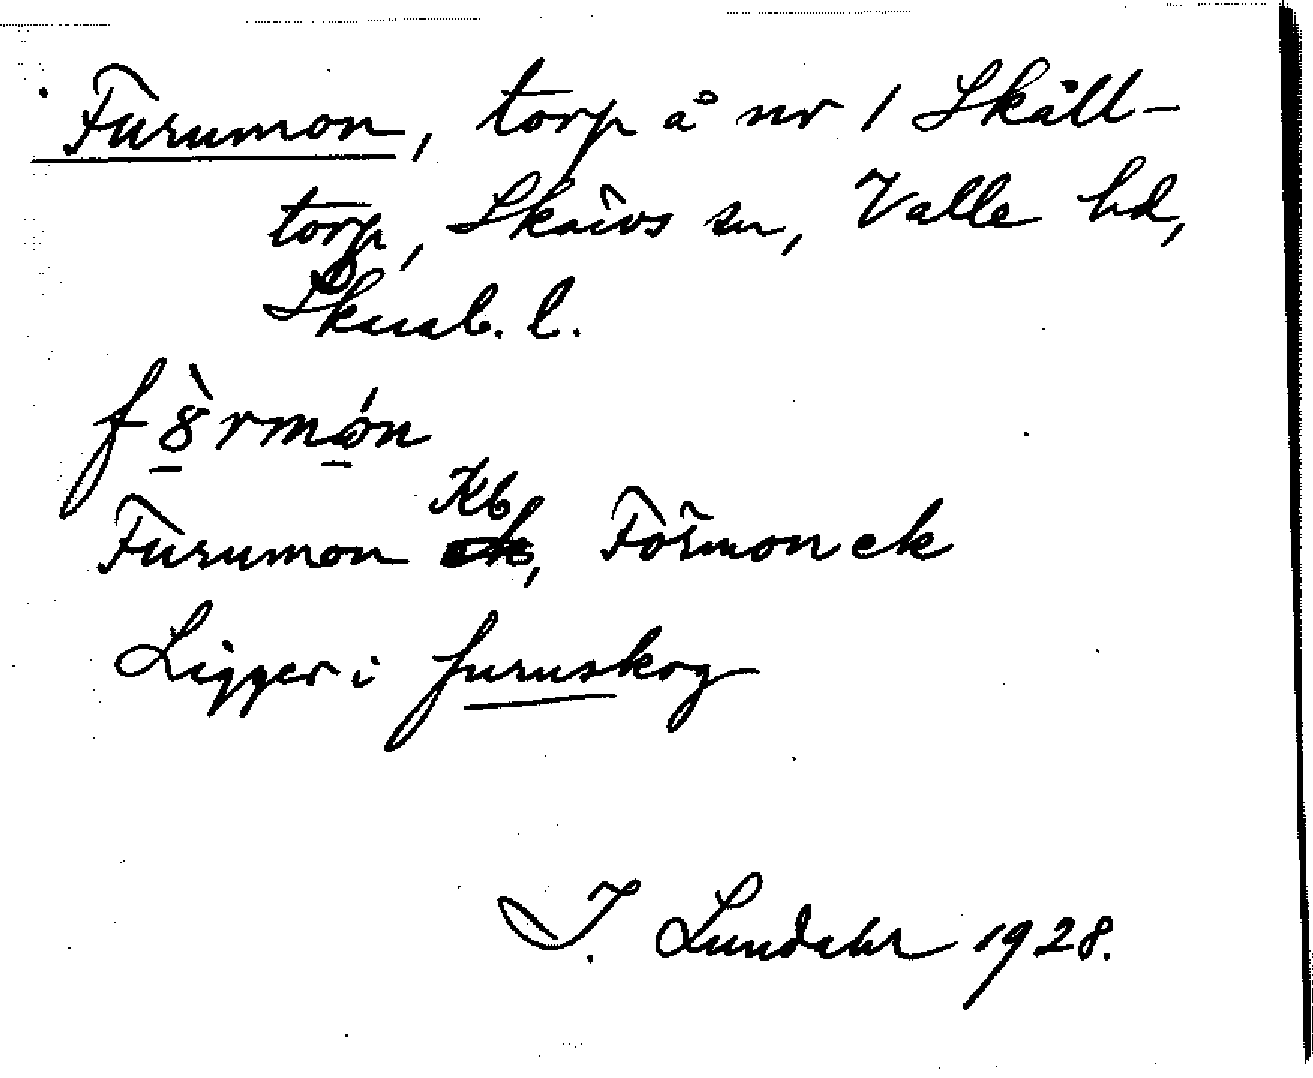 Furumon, torp å nr 1 Skåll-
torp, Skärvs sn, Valle hd,
Skarab. l.
f8̀rmón
Furumon Kb, Formon ek
Ligger i furuskog
I. Lundahl 1928.